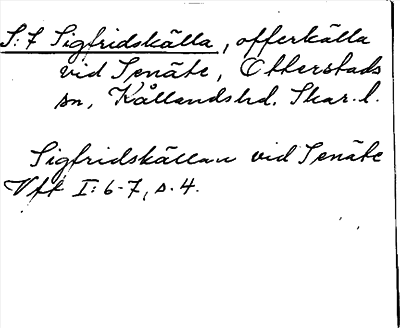 S:t Sigfridskälla, offerkälla
vid Senäte, Otterstads
sn, Kållandshd. Skar. l.
Sigfridskällan vid Senäte
Vft I: 6-7, s. 4.